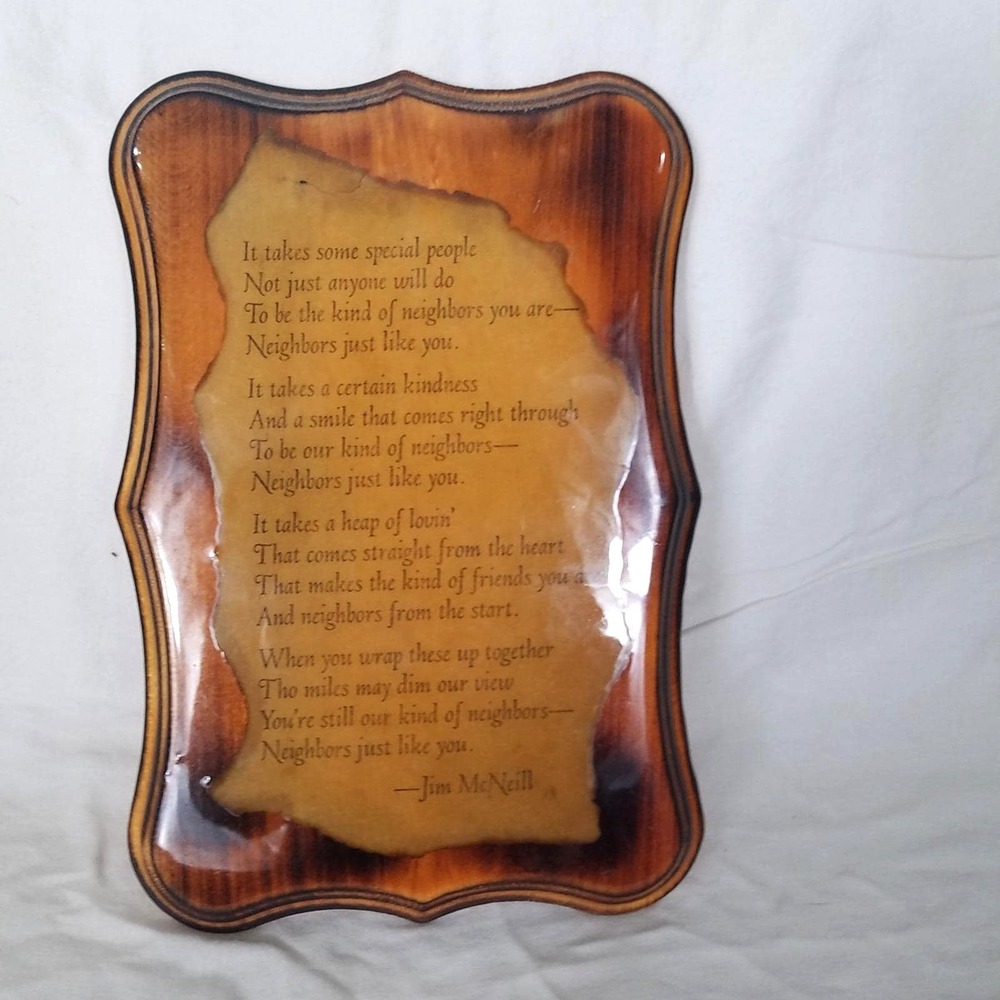 It takes some special people
Not just anyone will do
To be the kind of neighbors you are—
Neighbors just like you.
It takes a certain kindness
And a smile that comes right through
To be our kind of neighbors—
Neighbors just like you.
It takes a heap of lovin'
That comes straight from the heart
That makes the kind of friends you
And neighbors from the start.
When you wrap these up together
Tho miles may dim our view
You're still our kind of neighbors—
Neighbors just like you.
—Jim McNeill